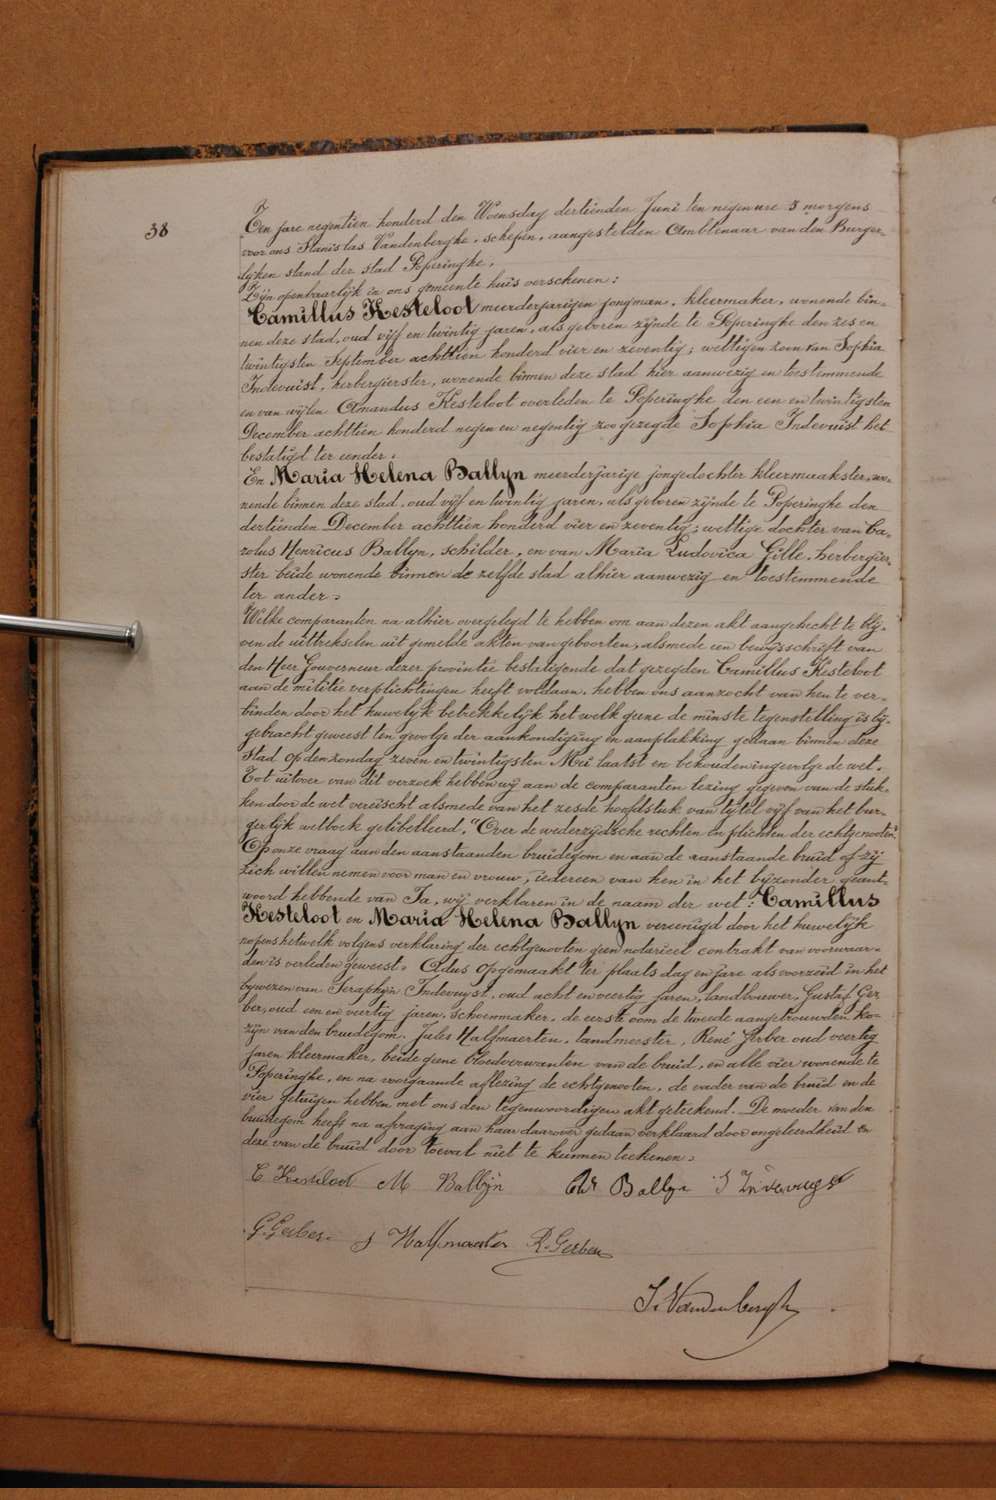 38
Ten jare negentien honderd den Woensdag dertienden Juni ten negen ure 's morgens
voor ons Stanislas Vandenberghe, schepen, aangestelden Ambtenaar van den Burger-
lyken stand der stad Poperinghe.
Zyn openbaarlyk in ons gemeente huis verschenen:
Camillus Kesteloot meerderjarigen jongman, kleermaker, wonende bin-
nen deze stad, oud vyf en twintig jaren, als geboren zynde te Poperinghe den zes en
twintigsten September achttien honderd vier en zeventig; wettigen zoon van Sophia
Indevuist, herbergierster, wonende binnen deze stad hier aanwezig en toestemmende
en van wylen Amandus Kesteloot overleden te Poperinghe den een en twintigsten
December achttien honderd negen en negentig zoo gezegde Sophia Indevuist het
bestatigd ter eender.
En Maria Helena Ballyn meerderjarige jongedochter kleermaakster, wo-
nende binnen deze stad, oud vyf en twintig jaren, als geboren zynde te Poperinghe den
dertienden December achttien honderd vier en zeventig; wettige dochter van Ca-
rolus Henricus Ballyn, schilder, en van Maria Ludovica Gille, herbergier-
ster beide wonende binnen de zelfde stad alhier aanwezig en toestemmende
ter ander.
Welke comparanten na alhier overgelegd te hebben om aan dezen akt aangehecht te bly-
ven de uittrekselen uit gemelde akten van geboorten, alsmede een bewysschrift van
den Heer Gouverneur dezer provintie bestatigende dat gezegden Camillus Kesteloot
aan de militie verplichtingen heeft voldaan, hebben ons aanzocht van hen te ver-
binden door het huwelyk betrekkelyk het welk geene de minste tegenstelling is by-
gebracht geweest ten gevolge der aankondiging en aanplakking gedaan binnen deze
stad op den zondag zeven en twintigsten Mei laatst en behouden ingevolge de wet.
Tot uitvoer van dit verzoek hebben wy aan de comparanten lezing gegeven van de stuk-
ken door de wet vereischt alsmede van het zesde hoofdstuk van tytel vyf van het bur-
gerlyk wetboek getibelleerd, "Over de wederzydsche rechten en plichten der echtgenooten."
Op onze vraag aan den aanstaanden bruidegom en aan de aanstaande bruid of zy
zich willen nemen voor man en vrouw, iedereen van hen in het byzonder geant-
woord hebbende van Ja, wy verklaren in de naam der wet: Camillus
Kesteloot en Maria Helena Ballyn vereenigd door het huwelyk
nopens hetwelk volgens verklaring der echtgenooten geen notarieel contrakt van voorwaar-
den is verleden geweest. Aldus opgemaakt ter plaats dag en jare als voorzeid in het
bywezen van Seraphyn Indevuyst, oud acht en veertig jaren, landbouwer, Gustaf Ger-
ber, oud een en veertig jaren, schoenmaker, de eerste oom de tweede aangetrouwden ko-
zyn van den bruidegom. Jules Halfmaerten, landmeester, René Gerber oud veertig
jaren kleermaker, beide geene bloedverwanten van de bruid, en alle vier wonende te
Poperinghe, en na voorgaande aflezing de echtgenooten, de vader van de bruid en de
vier getuigen hebben met ons den tegenwoordigen akt geteekend. De moeder van den
bruidegom heeft na afvraging aan haar daarover gedaan verklaard door ongeleerdheid en
deze van de bruid door toeval niet te kunnen teekenen.
C Kesteloot M Ballyn Ch Ballyn S Indevuyst
G. Gerber J Halfmaerten R. Gerber
S. Vandenberghe